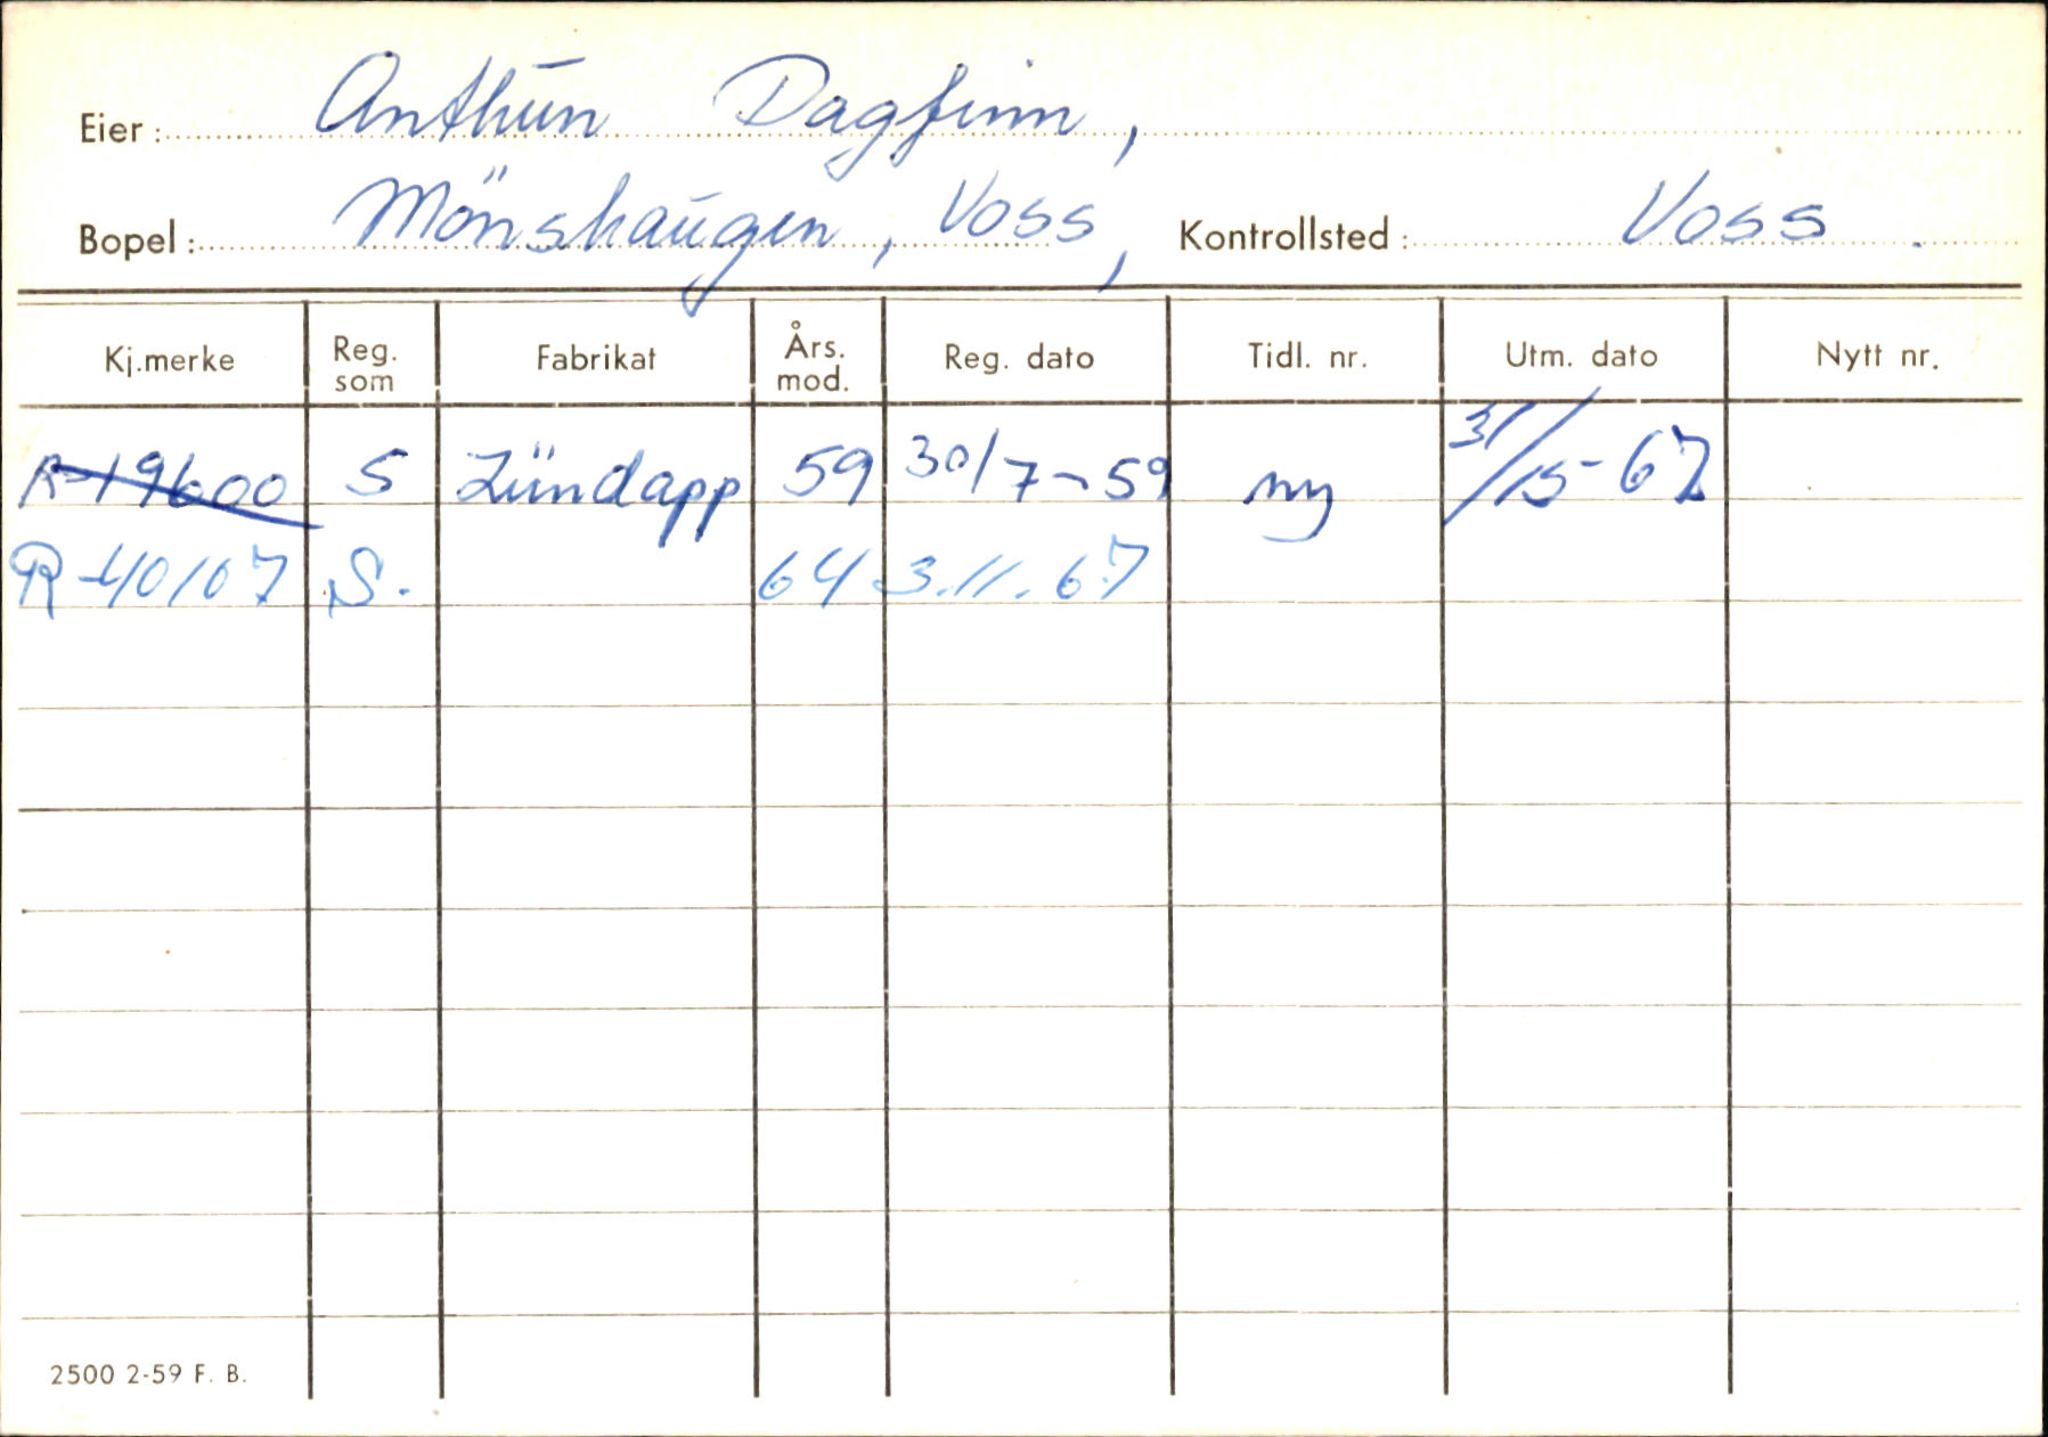 Eier: Anthun Dagfinn,
Bopel: Mönshaugen, Voss, Kontrollsted: Voss.
Kj.merke Reg. som Fabrikat Års. mod. Reg. dato Tidl. nr. Utm. dato Nytt nr.
R-19600 S Zündapp 59 30/7-59 ny 31/5-67
R-40107 S. 64 3.11.67
2500 2-59 F. B.